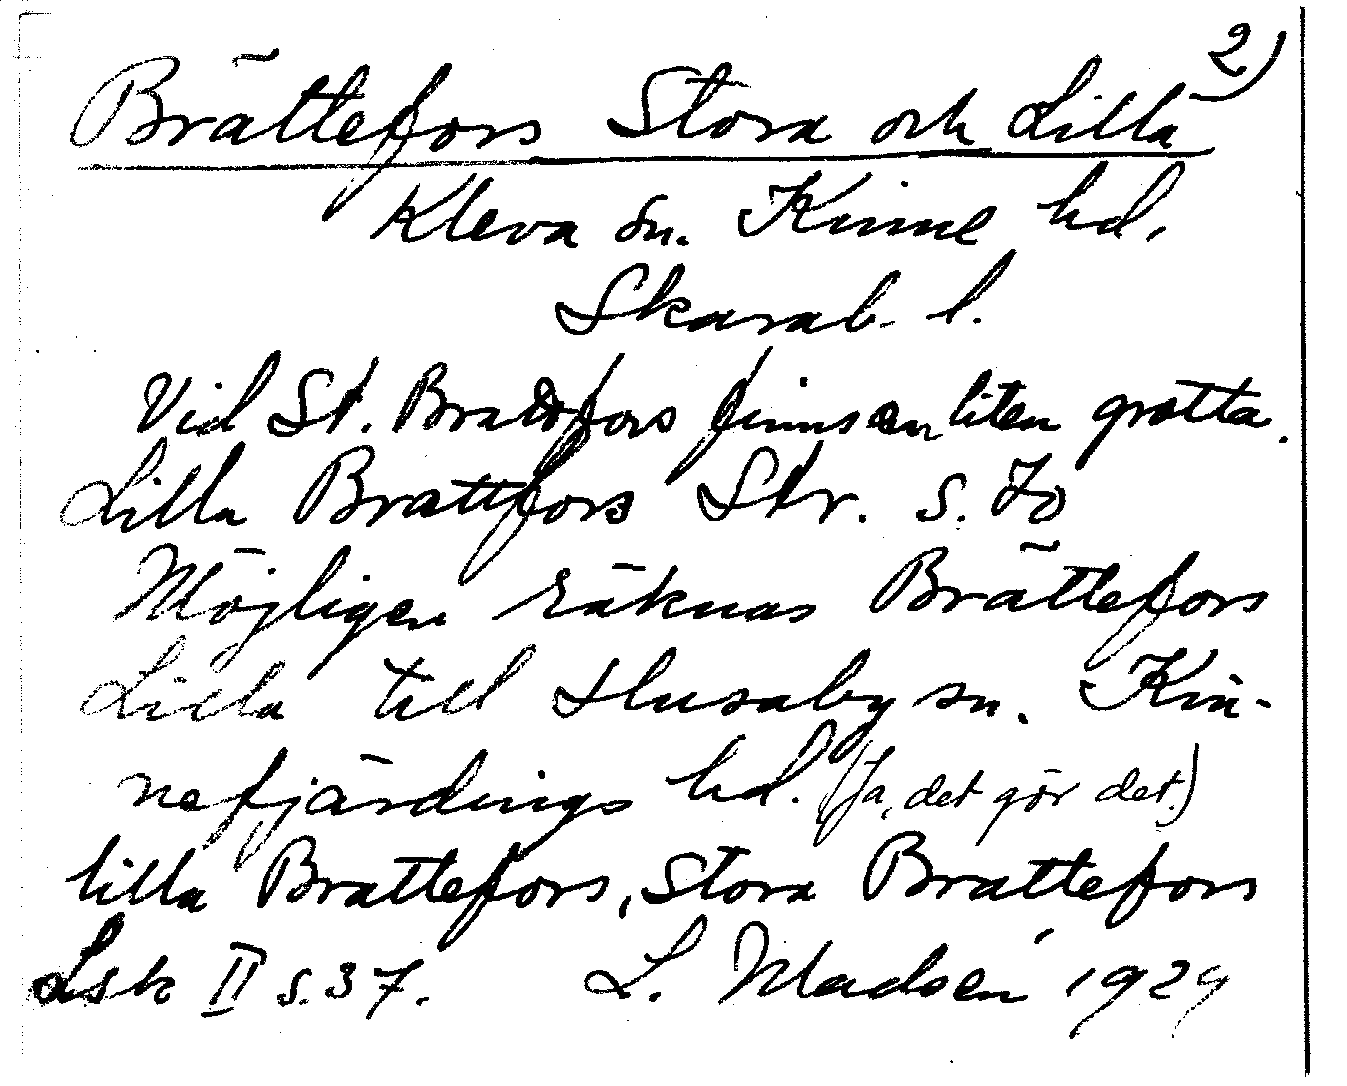 2)
Brättefors Stora och Lilla
Kleva sn. Kinne hd.
Skarab. l.
Vid St. Brattfors finns en liten grotta.
Lilla Brattfors Str. s. 70
Möjligen räknas Brättefors
Lilla till Husaby sn. Kin-
nefjärdings hd. (Ja, det gör det.)
lilla Brattefors, Stora Brattefors
Lsk II s. 37. L. Madsén 1929